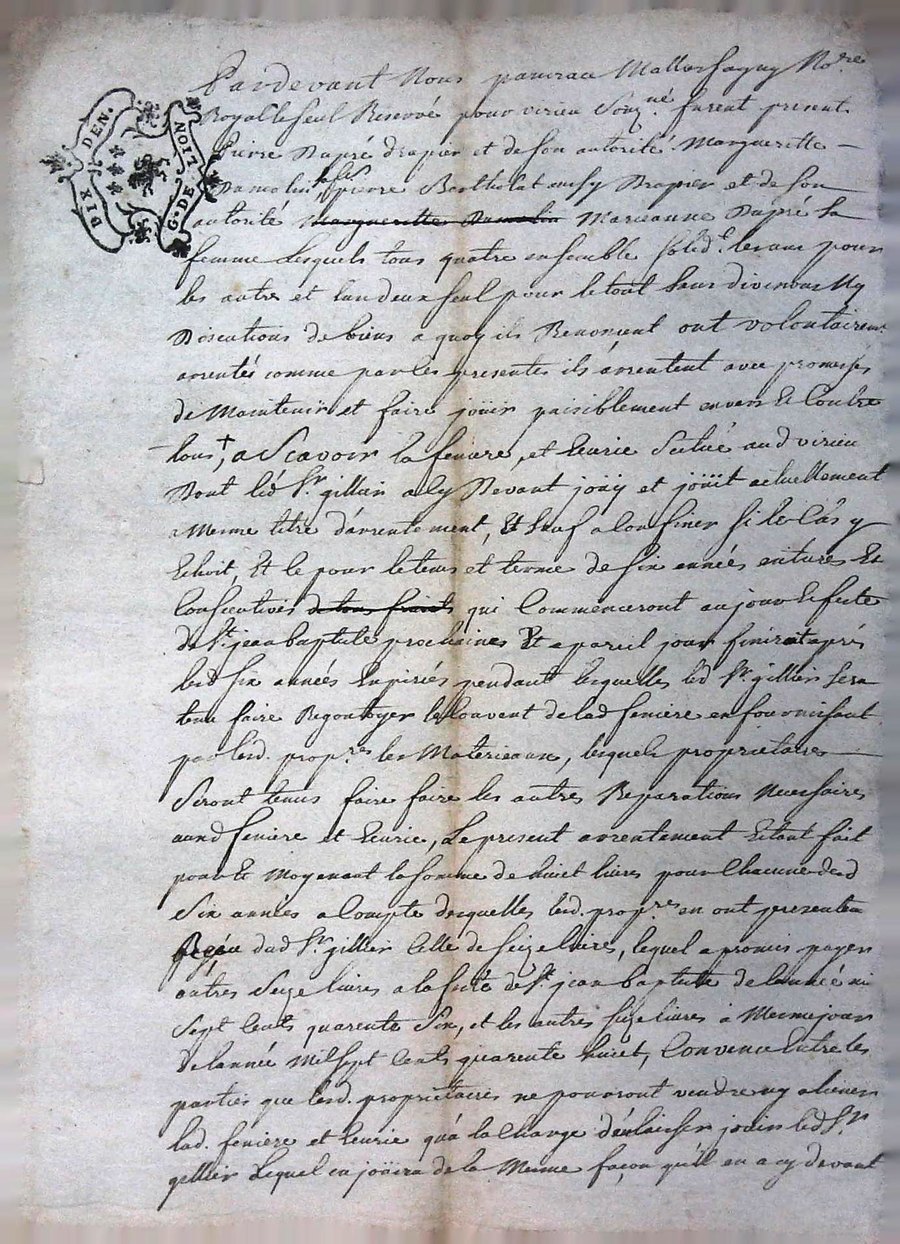 DIX DEN.
G. DE LION
Pardevant Nous Mallassagny No.re
Royal le seul Reservé pour virieu Souz.né furent present
pierre Dupré drapier et de son autorité Margueritte
Damolin pierre Bartholat aussy Drapier et de son
autorité Margueritte Damolin Marieanne Dupré sa
femme Lesquels tous quatre ensemble solid.t les uns pour
les autres et lun deux seul pour le tout sans division Ny
Discutions de biens a quoy ils Renonçent ont volontairem.t
arrentés comme par les presentes ils arrentent avec promesses
de Maintenir et faire joüir paisiblement envers Et Contre
tous, + a Scavoir la feniere, et Ecurie scitué aud virieu
Dont led S.r gillier a Cy Devant joüy et joüit actuellement
a Mesme titre d'arrentement, Et sauf a Confiner si le Cas y
Echoit, Et ce pour le tems et terme de six années entieres Et
Consecutives de tous fruits qui Commenceront au jour Et feste
de S.t jean baptiste prochaines Et a pareil jour finiront après
lesd six années Expirés pendant lesquelles led S.r gillier sera
tenu faire Regoutoyer le Couvent de lad feniere en fournissant
par lesd. prop.res les Materieaux, lesquels proprietaires
Seront tenus faire faire les autres Reparations Necessaires
auxd feniere et Ecurie, Le present arrentement Estant fait
pour Et Moyenant la somme de huict livres pour Chacune desd
Six années a Compte desquelles lesd. prop.res en ont presentem
Reçeu dud S.r gillier Celle de Seize livres, lequel a promis payer
autres Seize livres a la feste de S.t jean baptiste de lannée mil
Sept Cents quarente Six, et les autres seize livres à Mesme jour
de lannée Mil sept Cents quarente huict, Convenu Entre les
parties que lesd. proprietaires ne pourront vendre ny aliener
lad. feniere et Ecurie qu'a la Charge d'en laisser joüir led S.r
gillier Lequel en joüira de la Mesme façon qu'il en a cy devant